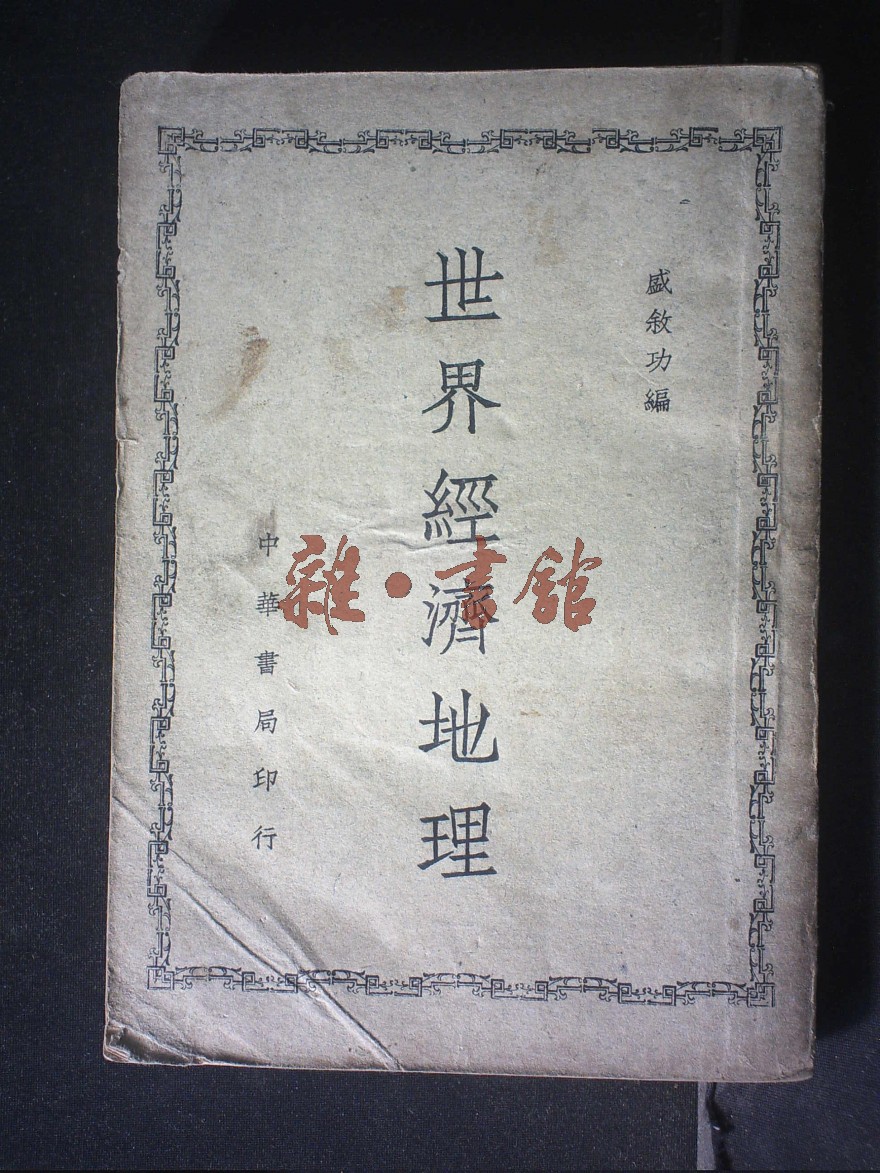 盛敘功編
世界經濟地理
中華書局印行
雜·書館